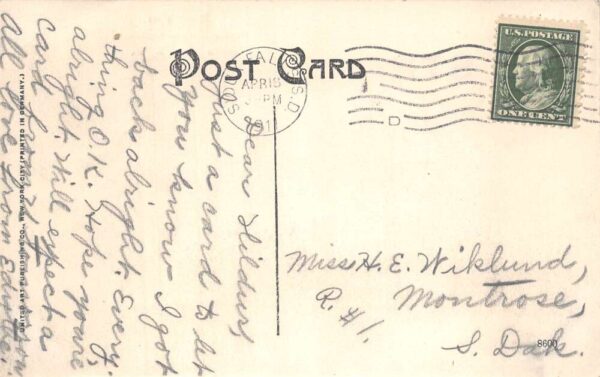 POST CARD
SIOUX FALLS S.D.
APR 18
PM
191
D
U.S. POSTAGE
ONE CENT
Dear Hildur,
Just a card to let
you know I got
back alright. Every,
thing O.K. Hope you're
alright. Will expect a
card from
All love from
Miss H. E. Wiklund,
R. #1.
Montrose,
S. Dak.
8600
UNITED ART PUBLISHING CO.—NEW YORK CITY (PRINTED IN GERMANY.)